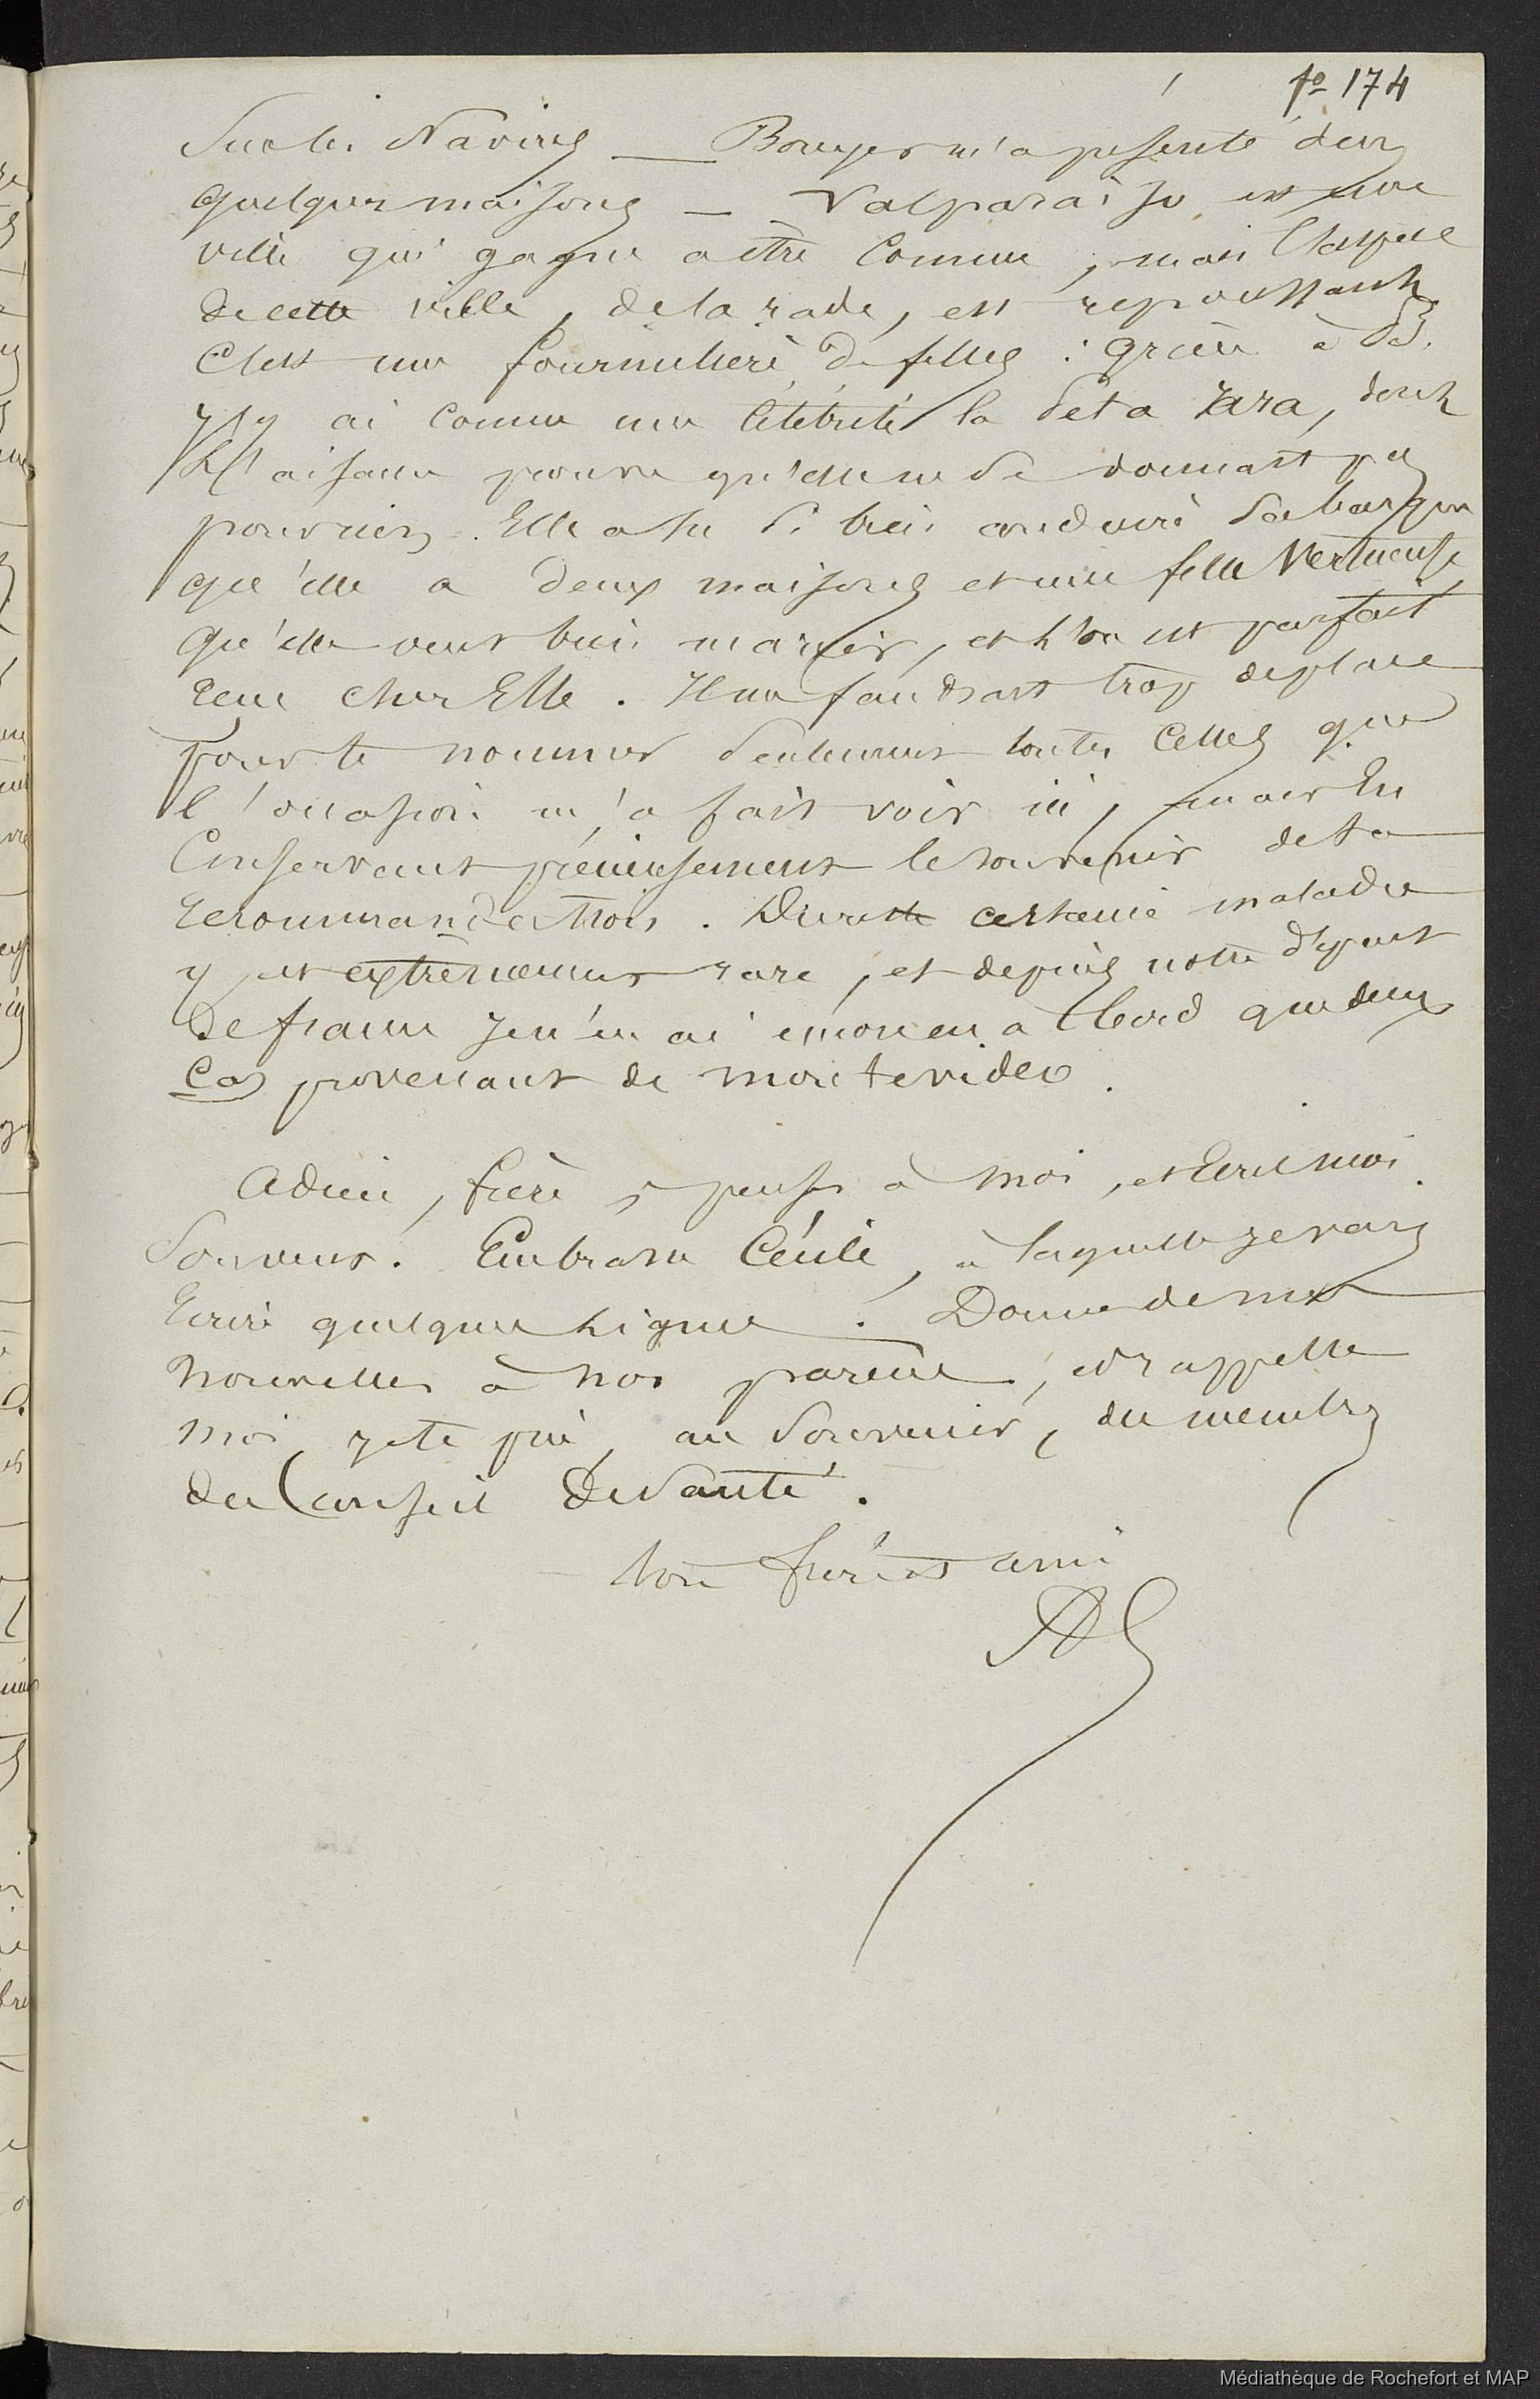 fo 174
Sur les Navires — Bouyer m'a présenté dans
quelques maisons — Valparaiso est une
ville qui gagne a etre Connue, mais l'aspect
de cette ville, de la rade, est repoussant
C'est une fourmiliere de filles : grace à
j'y ai Connu une Célébrité la Peta Zara, dont
l'aisance prouve qu'elle ne se donnait pas
pour rien. Elle a su si bien conduire sa barque
qu'elle a deux maisons et une fille Vertueuse
qu'elle veut bien marier, et l'on est parfait
recu chez Elle. Il me faudrait trop de place
pour te nommer seulement toutes Celles que
l'occasion m'a fait voir ici, mais En
Conservant précieusement le souvenir de ta
recommandation. Du reste certaine maladie
y est extrêmement rare, et depuis notre départ
De france Je n'en ai encore eu a bord que deux
Cas provenant de montevideo.
Adieu, frère, pense à moi, et Ecris moi
Souvent. Embrasse Cécile, à laquelle je vais
Ecrire quelques lignes. Donne de mes
Nouvelles à nos parents, et rappelle
moi, je te prie, au Souvenir, des membres
du Conseil De Santé.
ton frère et ami
Médiathèque de Rochefort et MAP